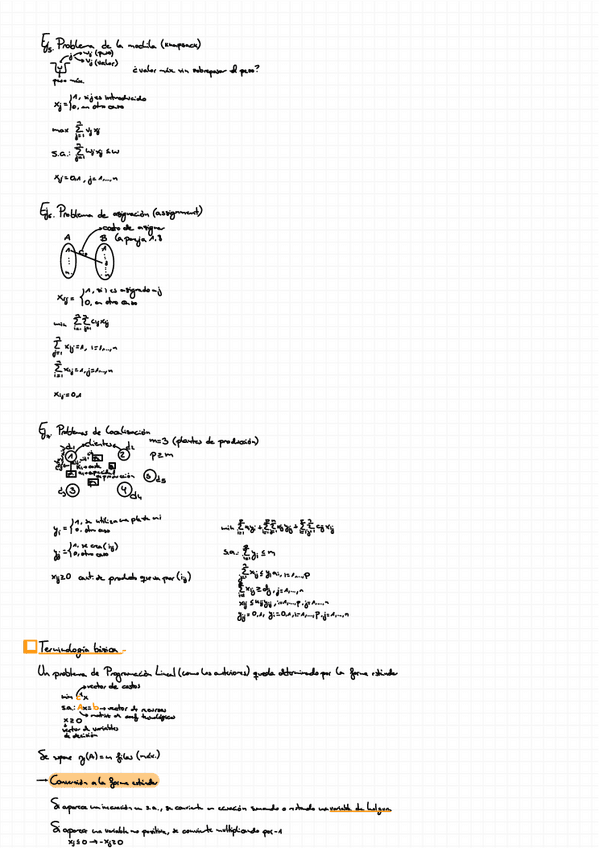 Ej. Problema de la mochila (knapsack)
j → wj (peso)
vj (valor)
W
peso máx.
¿valor máx sin sobrepasar el peso?
xj = { 1, si j es introducido
0, en otro caso
max Σ vj xj
s.a.: Σ wj xj ≤ W
xj = 0,1, j=1,...,n
Ej. Problema de asignación (assignment)
costo de asignar
A B la pareja
xij = { 1, si i es asignado a j
0, en otro caso
min Σ Σ cij xij
Σ xij = 1, i=1,...,n
Σ xij = 1, j=1,...,n
xij = 0,1
Ej. Problemas de localización
d1 clientes d2
m=3 (plantes de producción)
1 2
5 d5
d3 3 4 d4
yi = { 1, se utiliza una planta en i
0, otro caso
yij = { 1, se crea (i,j)
0, otro caso
xij ≥ 0 cant. de producto que va por (i,j)
s.a.: Σ yi ≤ m
Σ xij ≥ dj, j=1,...,n
yij = 0,1, yi = 0,1, i=1,...,p, j=1,...,n
Terminología básica
Un problema de Programación Lineal (como los anteriores) queda determinado por la forma estándar
vector de costos
min cᵗx
s.a.: Ax = b → vector de recursos
matriz de coef. tecnológicos
x ≥ 0
vector de variables
de decisión
Se supone rg(A) = m filas (máx.)
→ Conversión a la forma estándar
Si aparece una inecuación en s.a., se convierte en ecuación sumando o restando una variable de holgura
Si aparece una variable no positiva, se convierte multiplicando por -1
xj ≤ 0 → -xj ≥ 0